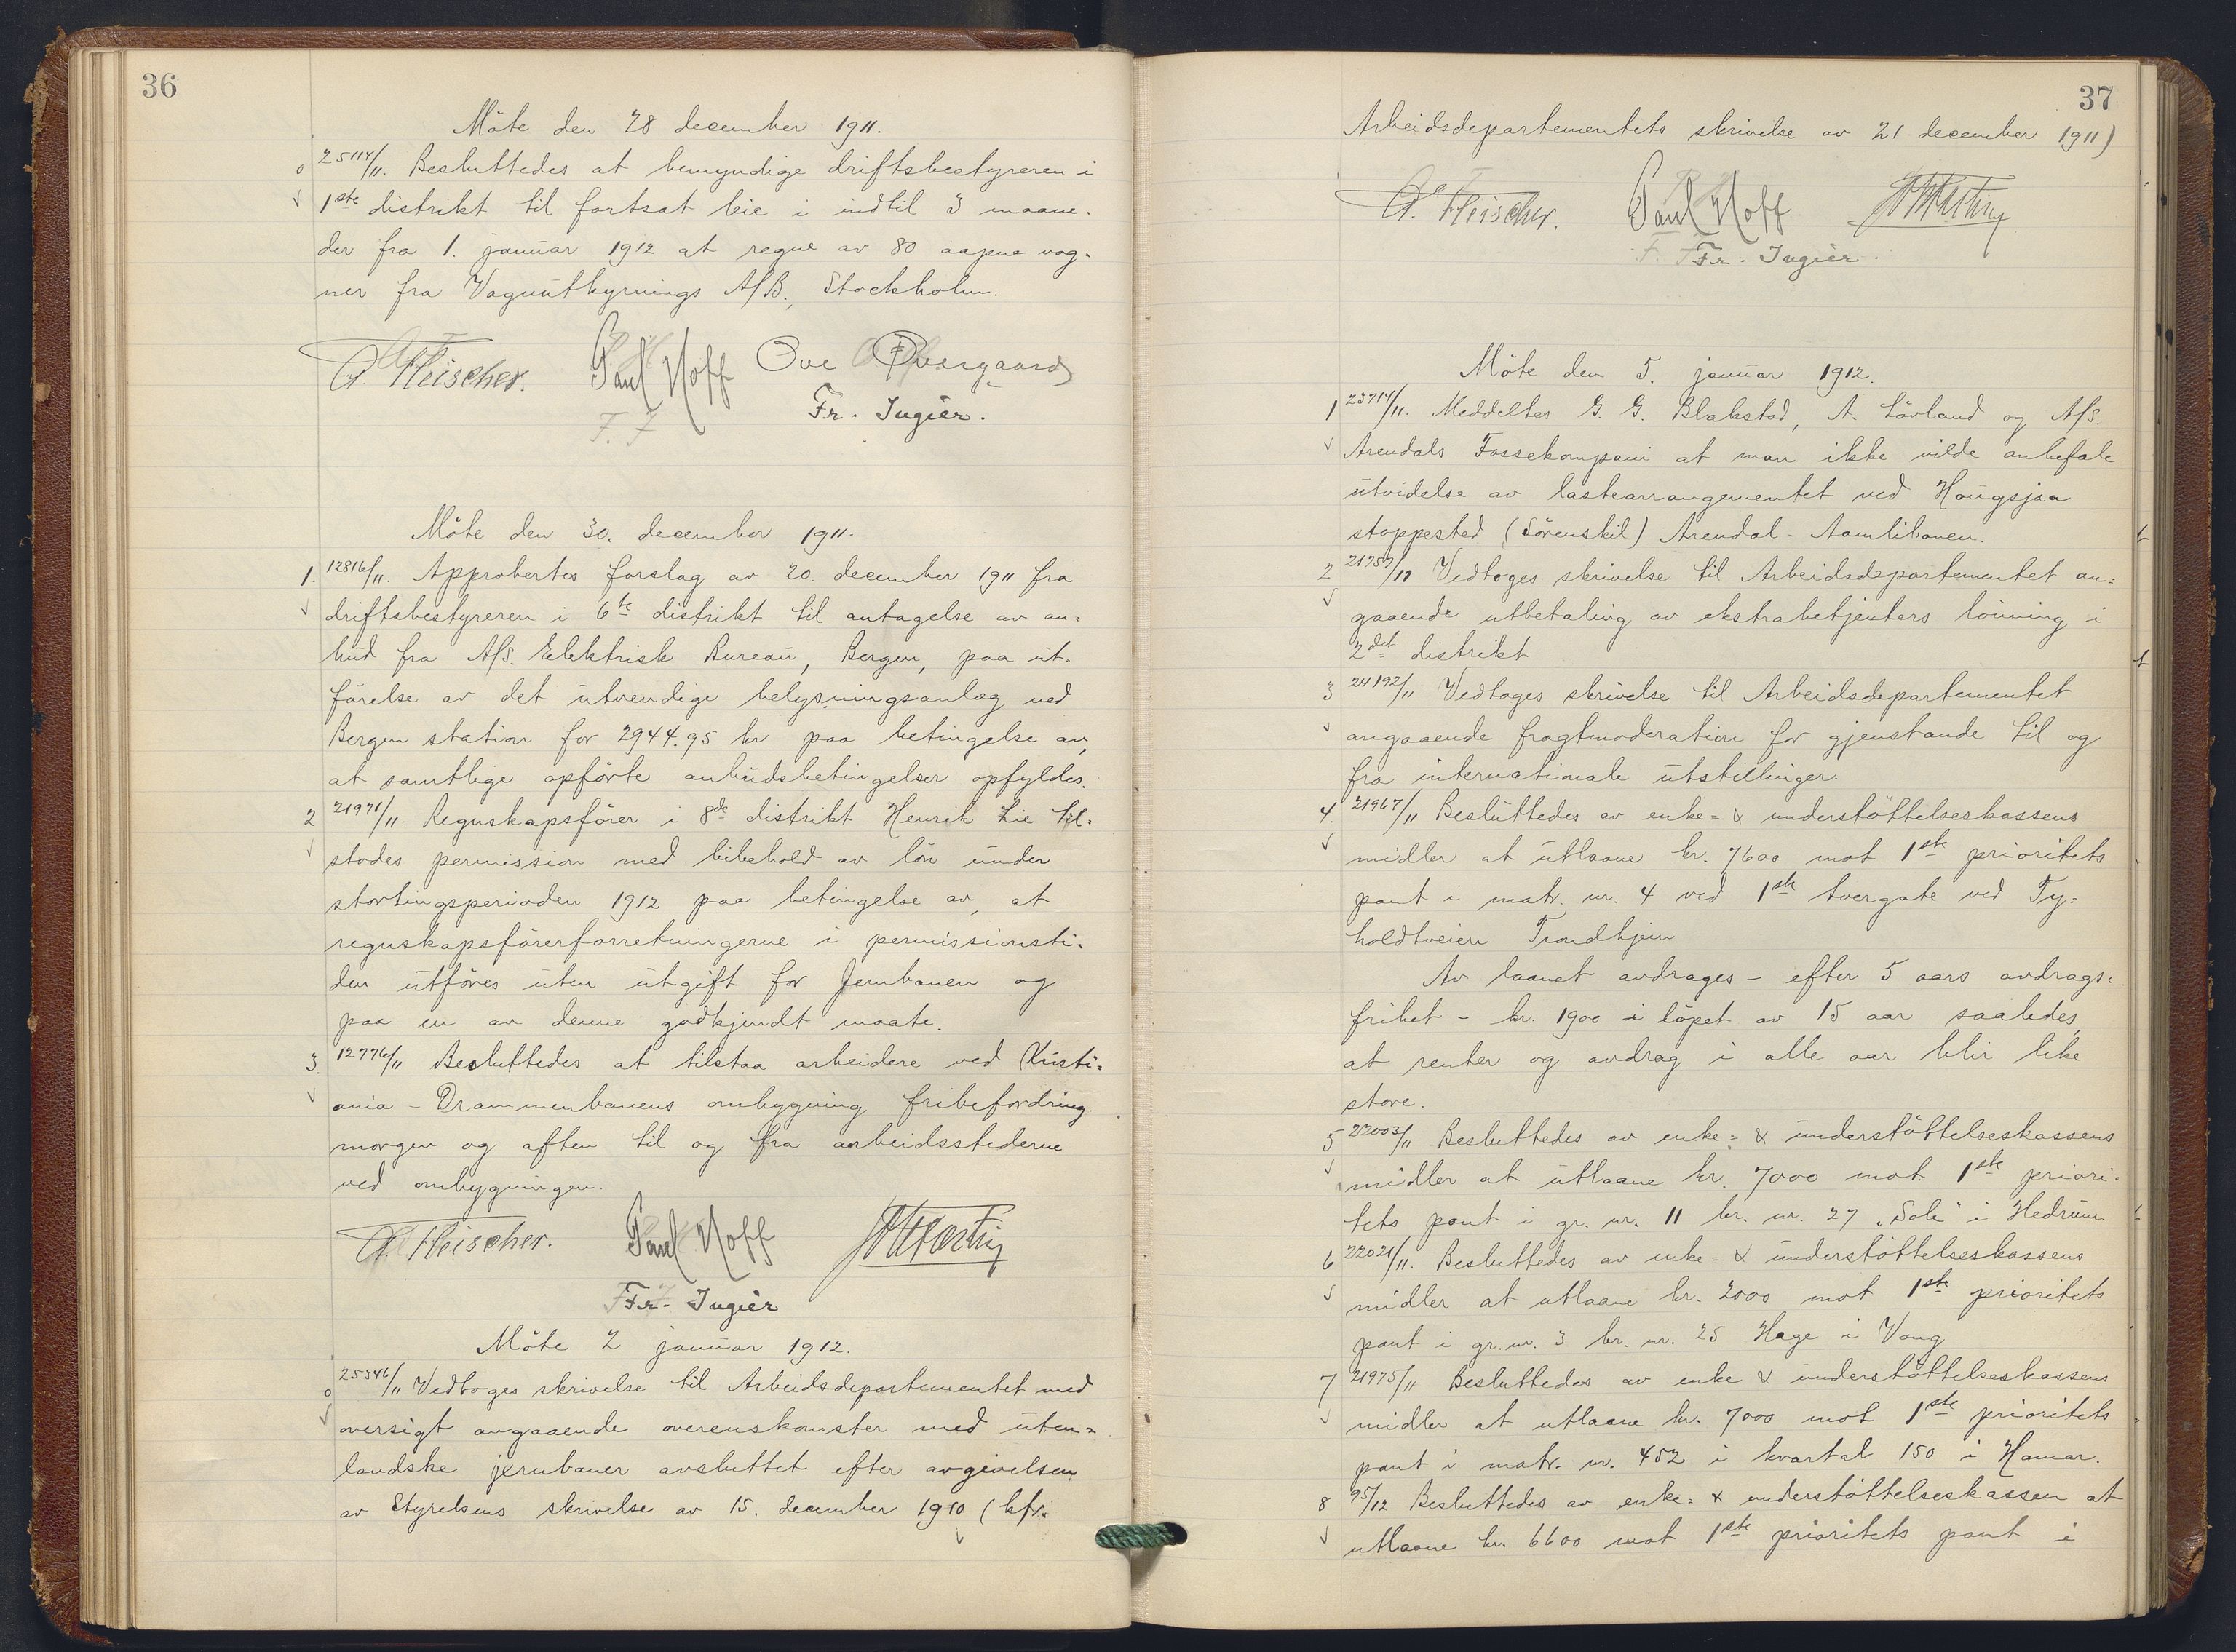 36
Möte den 28 december 1911.
25114/11. Besluttedes at bemyndige driftsbestyreren i
1ste distrikt til fortsat leie i indtil 3 maane-
der fra 1. januar 1912 at regne av 80 aapne vog-
ner fra Vagnuthyrnings A/B., Stockholm.
A. Fleischer. Paul Hoff Ove Overgaard
F. I Fr. Ingier.
Möte den 30. december 1911.
1. 12816/11. Approbertes forslag av 20. december 1911 fra
driftsbestyreren i 6te distrikt til antagelse av an=
bud fra A/S. Elektrisk Bureau, Bergen, paa ut-
förelse av det utvendige belysningsanlæg ved
Bergen station for 2944.95 kr paa betingelse av,
at samtlige opförte anbudsbetingelser opfyldes.
2 21971/11 Regnskapsförer i 8de distrikt Henrik Lie til=
stodes permission med bibehold av lön under
stortingsperioden 1912 paa betingelse av, at
regnskapsförerforretningerne i permissionsti-
den utföres uten utgift for Jernbanen og
paa en av denne godkjendt maate.
3. 12776/11 Besluttedes at tilstaa arbeidere ved Kristi=
ania - Drammenbanens ombygning fribefordring
morgen og aften til og fra arbeidsstederne
ved ombygningen.
A. Fleischer. Paul Hoff
Fr. Ingier
Möte 2 januar 1912.
25346/11 Vedtoges skrivelse til Arbeidsdepartementet med
oversigt angaaende overenskomster med uten=
landske jernbaner avsluttet efter avgivelsen
av Styrelsens skrivelse av 15. december 1910 (kfr.
37
Arbeidsdepartementets skrivelse av 21 december 1911)
A. Fleischer. Paul Hoff
Fr. Ingier.
Möte den 5. januar 1912.
1 23714/11. Meddeltes G. G. Blakstad, A. Lövland og A/S.
Arendals Fossekompani at man ikke vilde anbefale
utvidelse av lastearrangementet ved Haugsjaa
stoppested (Sörenskil) Arendal - Aamlibanen.
2 21757/11 Vedtoges skrivelse til Arbeidsdepartementet an=
gaaende utbetaling av ekstrabetjenters lönning i
2det distrikt
3 24192/11 Vedtoges skrivelse til Arbeidsdepartementet
angaaende fragtmoderation for gjenstande til og
fra internationale utstillinger.
4. 21967/11 Besluttedes av enke= & understöttelseskassens
midler at utlaane kr. 7600 mot 1ste prioritets
pant i matr. nr. 4 ved 1ste tvergate ved Ty=
holdtveien Trondhjem
Av laanet avdrages - efter 5 aars avdrags=
frihet - kr. 1900 i löpet av 15 aar saaledes,
at renter og avdrag i alle aar blir like
store.
5 22003/11 Besluttedes av enke= & understöttelseskassens
midler at utlaane kr. 7000 mot 1ste priori-
tets pant i gr. nr. 11 br. nr. 27 „Sole" i Hedrum
6 22021/11. Besluttedes av enke= & understöttelseskassens
midler at utlaane kr. 2000 mot 1ste prioritets
pant i gr. nr. 3 br. nr. 25 Hage i Vang
7 21975/11 Besluttedes av enke & understöttelseskassens
midler at utlaane kr. 7000 mot 1ste prioritets
pant i matr. nr. 452 i kvartal 150 i Hamar.
8 95/12 Besluttedes av enke= & understöttelseskassen at
utlaane kr. 6600 mot 1ste prioritets pant i